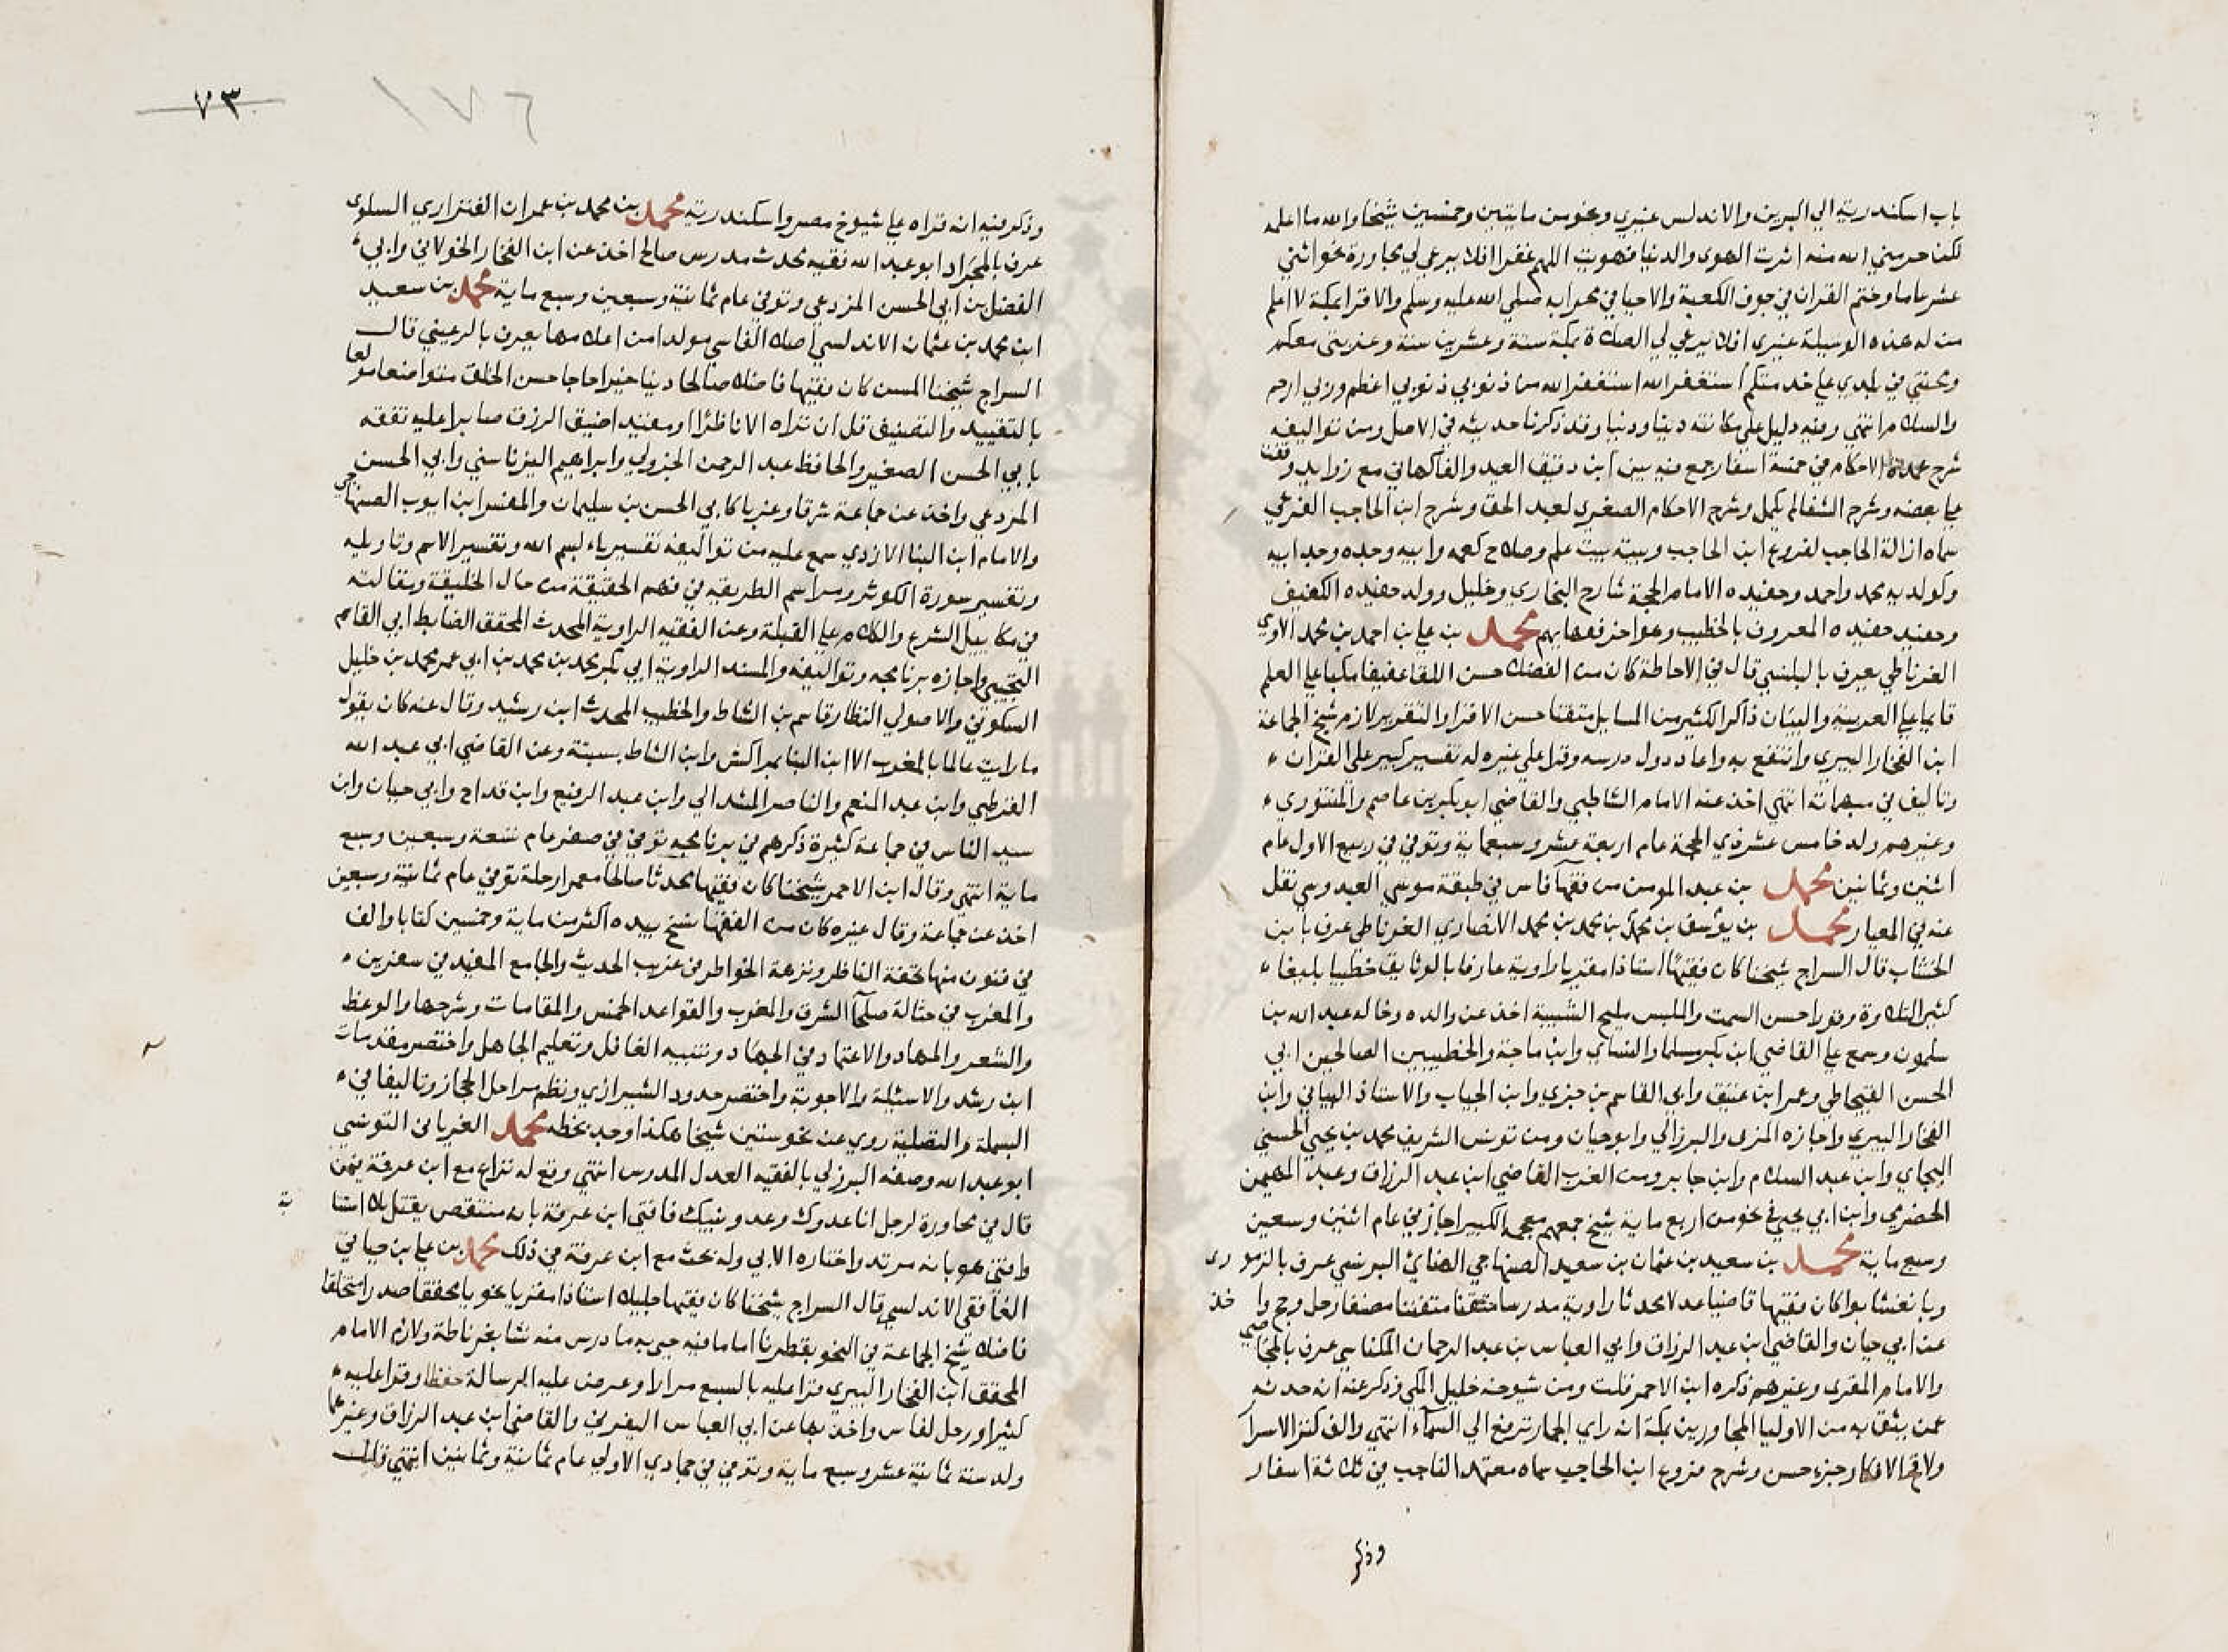 باب اسكندرية الي البرين والاندلس غيري ونحو من مايتين وخمسين شيخا والله ما اعلمه
لكن حرمني الله منه اثرت الهوى والدنيا فهويت اللهم غفرا افلا يرعي لي مجاورة نحو اثني
عشر عاما وختم القران في جوف الكعبة والاحيا في محرابه صلي الله عليه وسلم والاقرا بمكة لا اعلم
من له هذه الوسيلة غيري افلا يرعي لي الصلاة بمكة ستة وعشرين سنة وغربتي معكم
ومحنتي في بلدي علي خدمتكم استغفر الله استغفر الله من ذنوبي ذنوبي اعظم وربي ارحم
والسلام انتهي وفيه دليل علي مكانته دينا ودنيا وقد ذكرنا حديثه في الاصل ومن تواليفه
شرح عمدة الاحكام في خمسة اسفار جمع فيه بين ابن دقيق العيد والفاكهاني مع زوايد وقفت
علي بعضه وشرح الشفا لم يكمل وشرح الاحكام الصغري لعبد الحق وشرح ابن الحاجب الفرعي
سماه ازالة الحاجب لفروع ابن الحاجب وبيته بيت علم وصلاح كعمه وابيه وجده وجد ابيه
وكولديه محمد واحمد وحفيده الامام الحجة شارح البخاري وخليل وولد حفيده الكفيف
وحفيد حفيده المعروف بالخطيب وهو اخر فقهايهم محمد بن علي بن احمد بن محمد الاوسي
الغرناطي يعرف بالبلنسي قال في الاحاطة كان من الفضلا حسن اللقا عفيفا مكبا علي العلم
قايما علي العربية والبيان ذاكرا الكثير من المسايل متقنا حسن الاقرا والتقرير لازم شيخ الجماعة
ابن الفخار البيري وانتفع به واعاد دول درسه وقرا علي غيره له تفسير كبير علي القران
وتاليف في مبهماته انتهي اخذ عنه الامام الشاطبي والقاضي ابو بكر بن عاصم والمنتوري
وغيرهم ولد خامس عشر ذي الحجة عام اربعة عشر وسبعماية وتوفي في ربيع الاول عام
اثنين وثمانين محمد بن عبد المومن من فقهآ فاس في طبقة موسي العبدوسي نقل
عنه في المعيار محمد بن يوسف بن محمد بن محمد بن محمد الانصاري الغرناطي عرف بابن
الخشاب قال السراج شيخنا كان فقيها استاذا مقريا راوية عارفا بالوثايق خطيبا بليغا
كثير التلاوة وقورا حسن السمت والملبس مليح الشيبة اخذ عن والده وخاله عبد الله بن
سلمون وسمع علي القاضي ابن بكر مسلما والنساي وابن ماجة والخطيبين الصالحين ابي
الحسن القيجاطي وعمر ابن عتيق وابي القاسم بن جزي وابن الجياب والاستاذ البياني وابن
الفخار البيري واجازه المزى والبرزالي وابو حيان ومن تونس الشريف محمد بن يحيي الحسني
البجاي وابن عبد السلام وابن جابر ومن الغرب القاضي ابن عبد الرزاق وعبد المهيمن
الحضرمي وابن ابي يحيي في نحو من اربع ماية شيخ جمعهم معجمه الكبير اجاز في عام اثنين وسبعين
وسبع ماية محمد بن سعيد بن عثمان بن سعيد الصنهاجي البرنسي عرف بالزموري
وبانغشابوا كان فقيها قاضيا عدلا محدثا راوية مدرسا متقنا متفننا مصنفا رحل وحج واخذ
عن ابي حيان والقاضي ابن عبد الرزاق وابي العباس بن عبد الرحمان المكناسي عرف بالمجاصي
والامام المقرى وغيرهم ذكره ابن الاحمر قلت ومن شيوخه خليل المكي وذكر عنه انه حدثه
عمن يثق به من الاوليا المجاورين بمكة انه راي الجمار ترفع الي السمآء انتهي والف كنز الاسرآ
ولاقح الافكار وجزء حسن وشرح فروع ابن الحاجب سماه معتمد الناجب في ثلاثة اسفار
وذكر
٧٣
١٧٦
وذكر فيه انه قراه علي شيوخ مصر واسكندرية محمد بن محمد بن عمران الفنزاري السلوى
عرف بالمجراد ابو عبد الله فقيه محدث مدرس صالح اخذ عن ابن الفخار الخولاني وابي
الفضل بن ابي الحسن المزدغي وتوفي عام ثمانية وسبعين وسبع ماية محمد بن سعيد
ابن محمد بن عثمان الاندلسي اصلا الفاسي مولدا من اعلامها يعرف بالرعيني قال
السراج شيخنا المسن كان فقيها فاضلا صالحا دينا خيرا حاجا حسن الخلق متواضعا مولعا
بالتقييد والتصنيف قل ان تراه الا ناظرا او مقيدا ضيق الرزق صابرا عليه تفقه
بابي الحسن الصغير والحافظ عبد الرحمن الجزولي وابراهيم اليزناسني وابي الحسن
المزدغي واخذ عن جماعة شرقا وغربا كابي الحسن بن سليمان والمفسر ابن ايوب الصنهاجي
والامام ابن البنا الازدي سمع عليه من تواليفه تفسير باء بسم الله وتفسير الاسم وتاويله
وتفسير سورة الكوثر ومراسم الطريقه في فهم الحقيقة من حال الخليقة ومقالته
في مكاييل الشرع والكلام علي القبلة وعن الفقيه الراوية المحدث المحقق الضابط ابي القاسم
التجيبي واجازه برنامجه وتواليفه والمسند الراوية ابي بكر محمد بن محمد بن ابي عمر محمد بن خليل
السكوني والاصولي النظار قاسم بن الشاط والخطيب المحدث ابن رشيد وقال عنه كان يقول
ما رايت عالما بالمغرب الا ابن البنا بمراكش وابن الشاط بسبتة وعن القاضي ابي عبد الله
القرطبي وابن عبد المنعم والناصر المشدالي وابن عبد الرفيع وابن قداح وابي حيان وابن
سيد الناس في جماعة كثيرة ذكرهم في برنامجه توفي في صفر عام تسعة وسبعين وسبع
ماية انتهي وقال ابن الاحمر شيخنا كان فقيها محدثا صالحا معمرا رحلة توفي عام ثمانية وسبعين
اخذ عن جماعة وقال غيره كان من الفقها نسخ بيده اكثر من ماية وخمسين كتابا والف
في فنون منها تحفة الناظر ونزهة الخواطر في غريب الحديث والجامع المفيد في سفرين
والمغرب في صلحآ الشرق والمغرب والقواعد الخمس والمقامات وشرحها والوعظ
والشعر والمهاد والاعتماد في الجهاد وتنبيه الغافل وتعليم الجاهل واختصر مقدمات
ابن رشد والاسئلة والاجوبة واختصر حدود الشيرازي ونظم مراحل الحجاز وتاليفا في
البسملة والتصلية روي عن نحو ستين شيخا هكذا وجد بخطه محمد الغرياني التونسي
ابو عبد الله وصفه البرزلي بالفقيه العدل المدرس انتهي وقع له نزاع مع ابن عرفة فيمن
قال في محاورة لرجل انا عدوك وعدو نبيك فافتى ابن عرفة بانه منتقص يقتل بلا استتا بة
وافتى هو بانه مرتد واختاره الابي وله بحث مع ابن عرفة في ذلك محمد بن علي بن حياتي
الغافقي الاندلسي قال السراج شيخنا كان فقيها جليلا استاذا مقريا نحويا محققا صدرا متخلقا
فاضلا شيخ الجماعة في النحو بقطرنا اماما فيه حيي به ما درس منه نشا بغرناطة ولازم الامام
المحقق ابن الفخار البيري قرا عليه بالسبع مرارا وعرض عليه الرسالة حفظا وقرا عليه
كثيرا ورحل لفاس واخذ بها عن ابي العباس اليفرني والقاضي ابن عبد الرزاق وغيرهما
ولد سنة ثمانية عشر وسبع ماية وتوفي في جمادي الاولي عام ثمانية وثمانين انتهي قلت